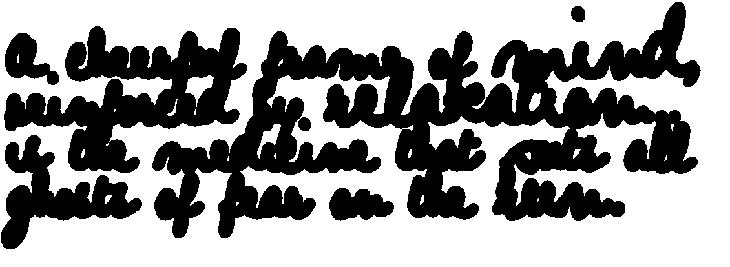 a cheerful frame of mind,
reinforced by relaxation...
is the medicine that puts all
ghosts of fear on the run.